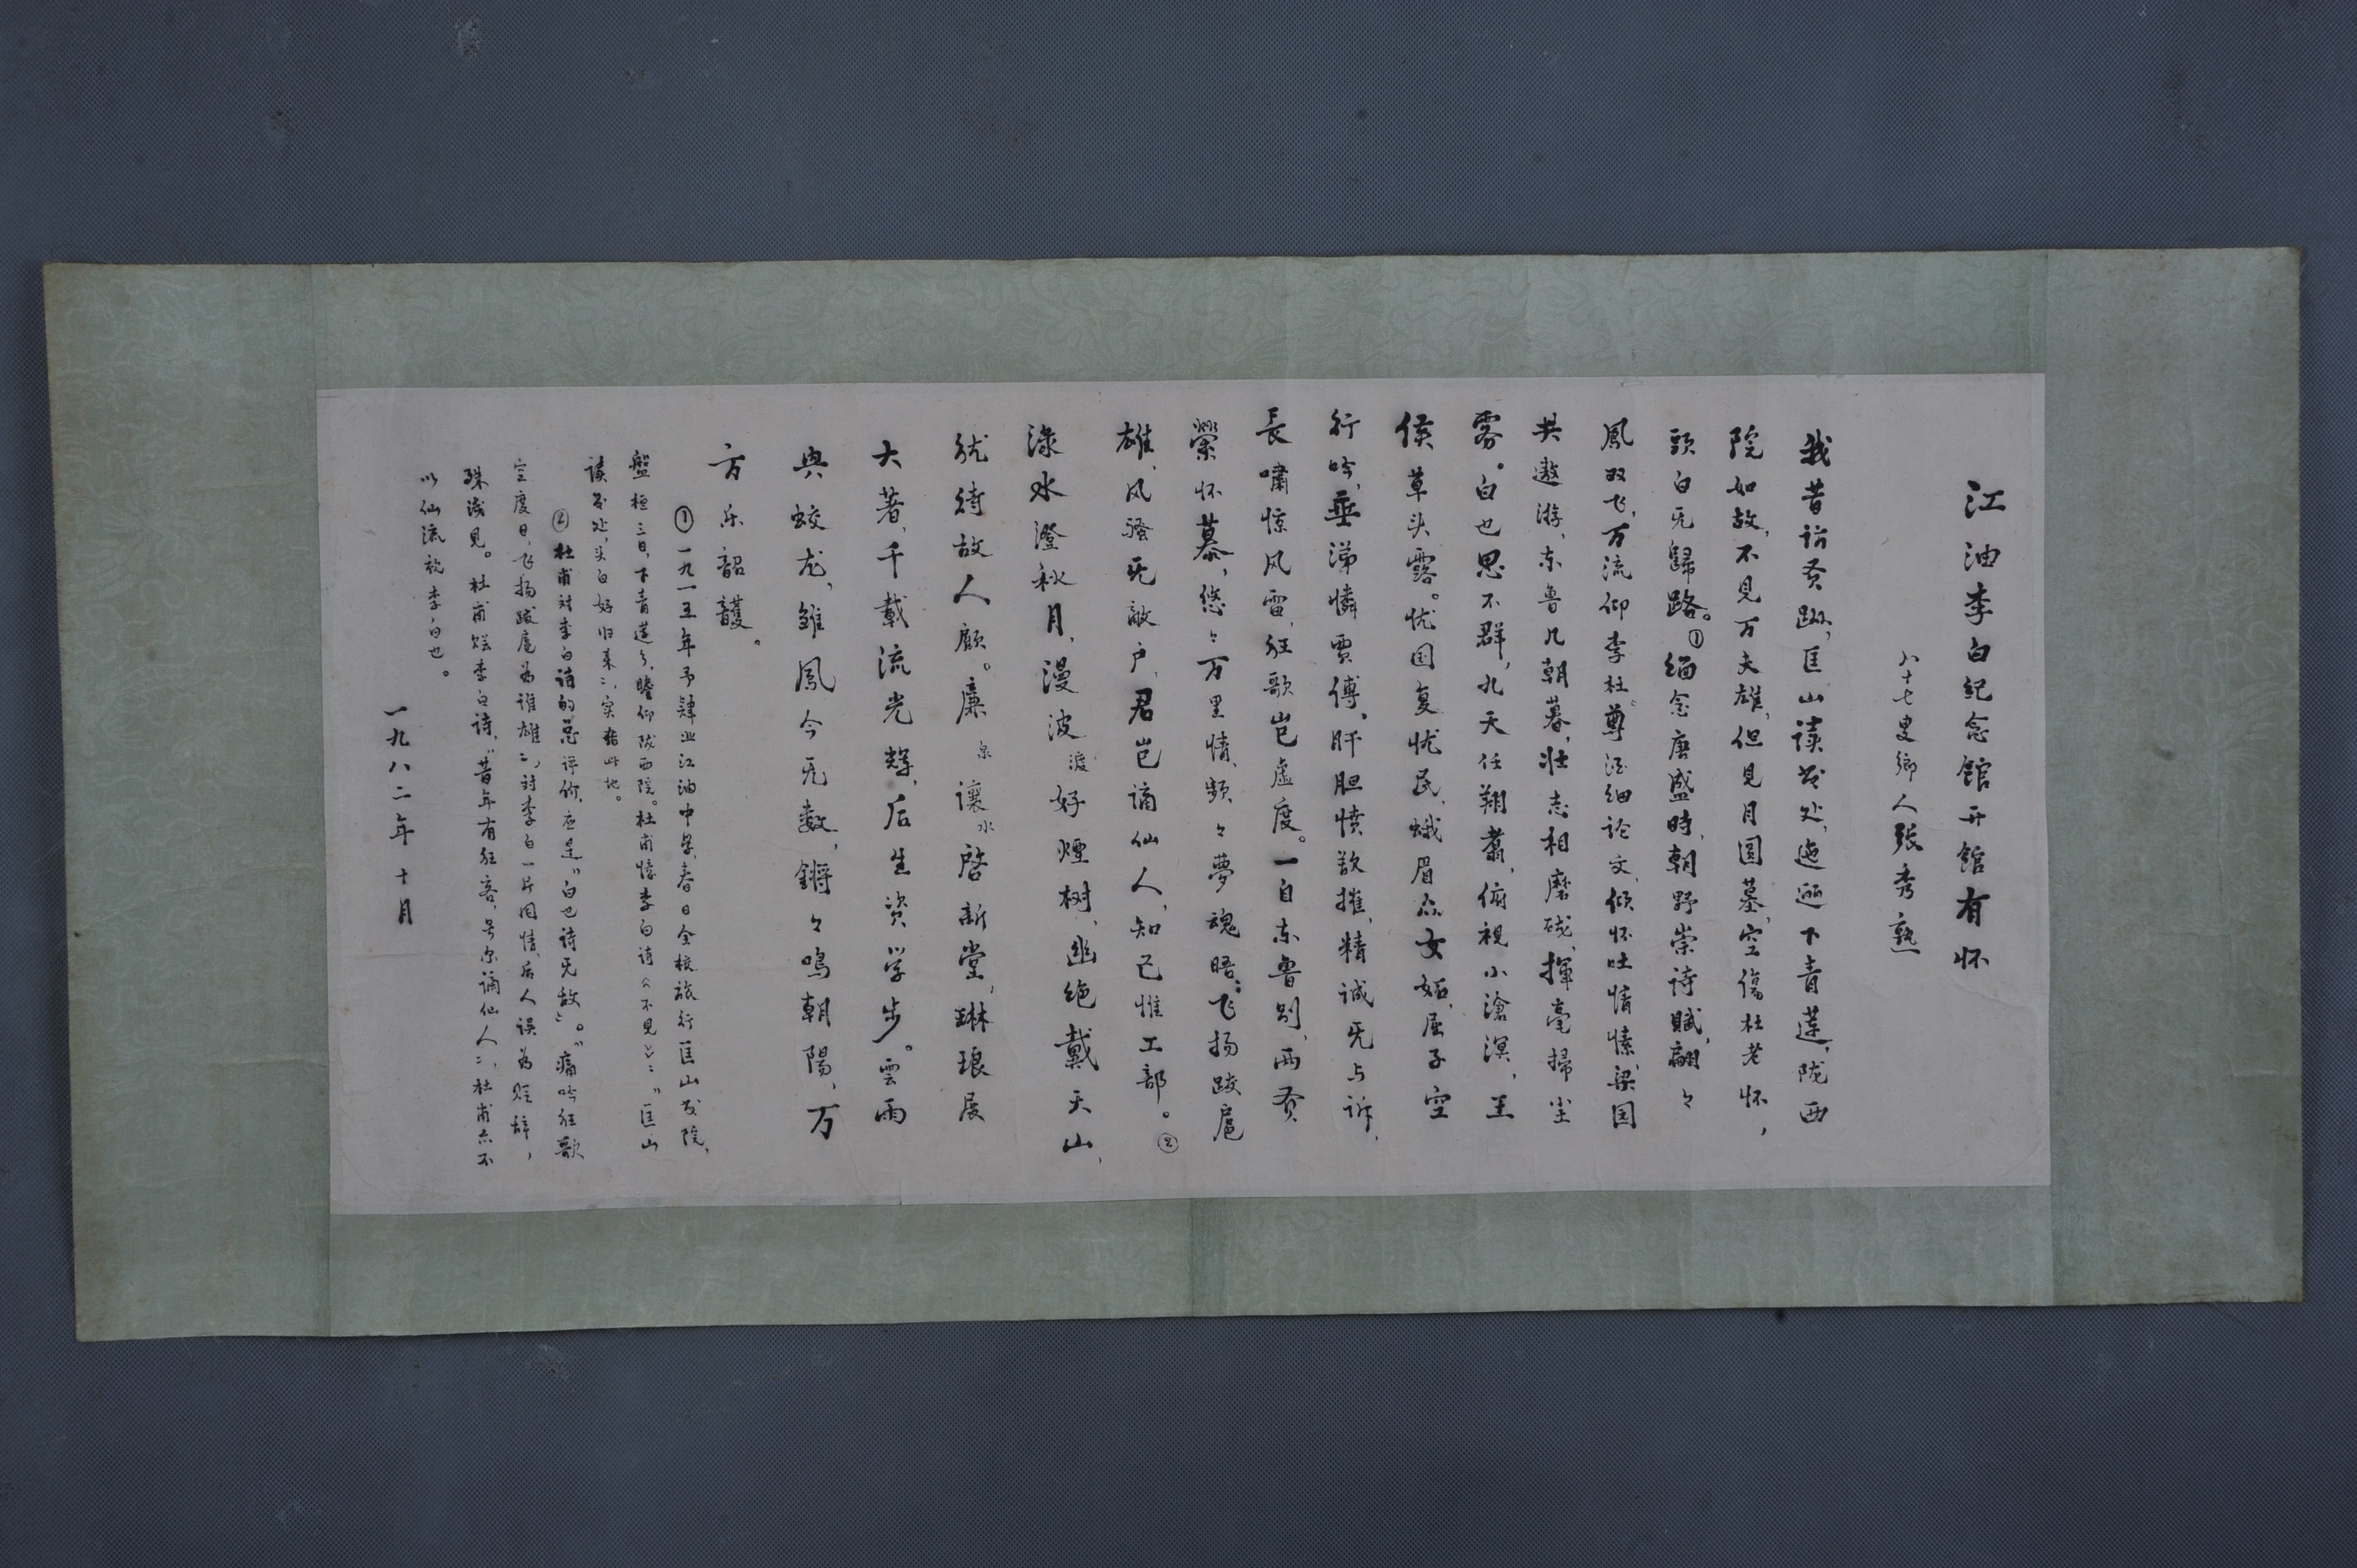 江油李白纪念馆开馆有怀
八十七叟鄉人张秀熟
我昔访贤跡，匡山读书处，迤逦下青蓮，陇西
院如故，不见万夫雄，但见月圆墓，空傷杜老怀，
頭白无歸路。①缅念唐盛時，朝野崇诗賦，翩々
鳳双飞，万流仰李杜。尊酒细论文，倾怀吐情愫，梁园
共遨游，东鲁几朝暮，壮志相磨砻，揮毫掃尘
雾。白也思不群，九天任翔翥，俯視小滄溟，王
侯草头露。忧国复忧民，蛾眉众女妬，屈子空
行吟，垂涕憐贾傅，肝胆愤欲摧，精诚无与诉，
長啸惊风雷，狂歌岂虚度。一自东鲁别，两贤
縈怀慕，悠々万里情，频々夢魂晤；飞扬跋扈
雄，风骚无敵户，君岂谪仙人，知己惟工部。②
渌水澄秋月，漫波渡好煙树，幽绝戴天山，
犹待故人顧。廉泉讓水啓新堂，琳琅展
大著，千載流光輝，后生资学步。雲雨
興蛟龙，雏鳳今无数，锵々鳴朝陽，万
方乐韶頀。
①一九一五年予肄业江油中学，春日全校旅行匡山书院，
盤桓三日，下青莲乡，瞻仰陇西院。杜甫懷李白诗《不见》：“匡山
读书处，头白好归来”，实指此地。
②杜甫对李白诗的总评价，应是“白也诗无敌”。“痛吟狂歌
空度日，飞扬跋扈为谁雄”，对李白一片同情，后人误为贬辞，
殊浅见。杜甫赠李白诗，“昔年有狂客，号尔谪仙人”，杜甫亦不
以仙流视李白也。
一九八二年十月